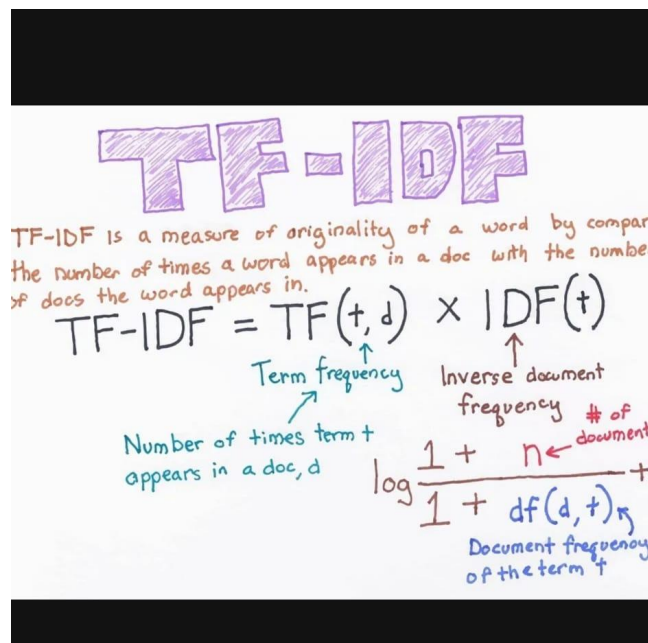 TF-IDF
TF-IDF is a measure of originality of a word by compar
the number of times a word appears in a doc with the numbe
of docs the word appears in.
TF-IDF = TF(t, d) × IDF(t)
Term frequency
Inverse document
frequency
Number of times term t
appears in a doc, d
# of
document
log 1 + n
1 + df(d, t) +
Document frequency
of the term t